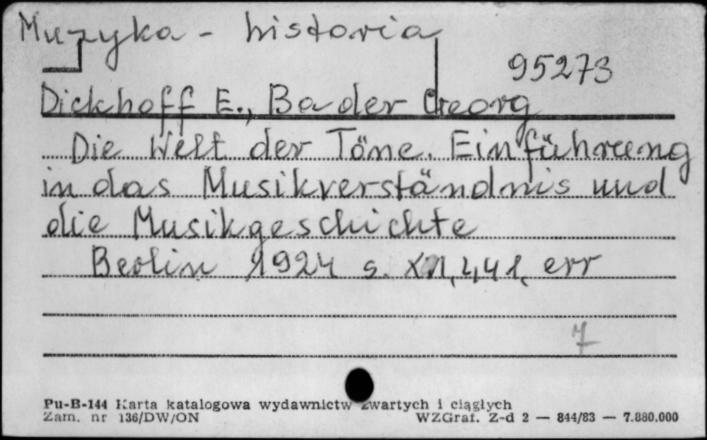 Muzyka - historia
95273
Dickhoff E., Bader Georg
Die Welt der Töne. Einführung
in das Musikverständnis und
die Musikgeschichte
Berlin 1924 s. XII, 441, err
7
Pu-B-144 Karta katalogowa wydawnictw zwartych i ciągłych
Zam. nr 136/DW/ON WZGraf. Z-d 2 — 844/83 — 7.880.000